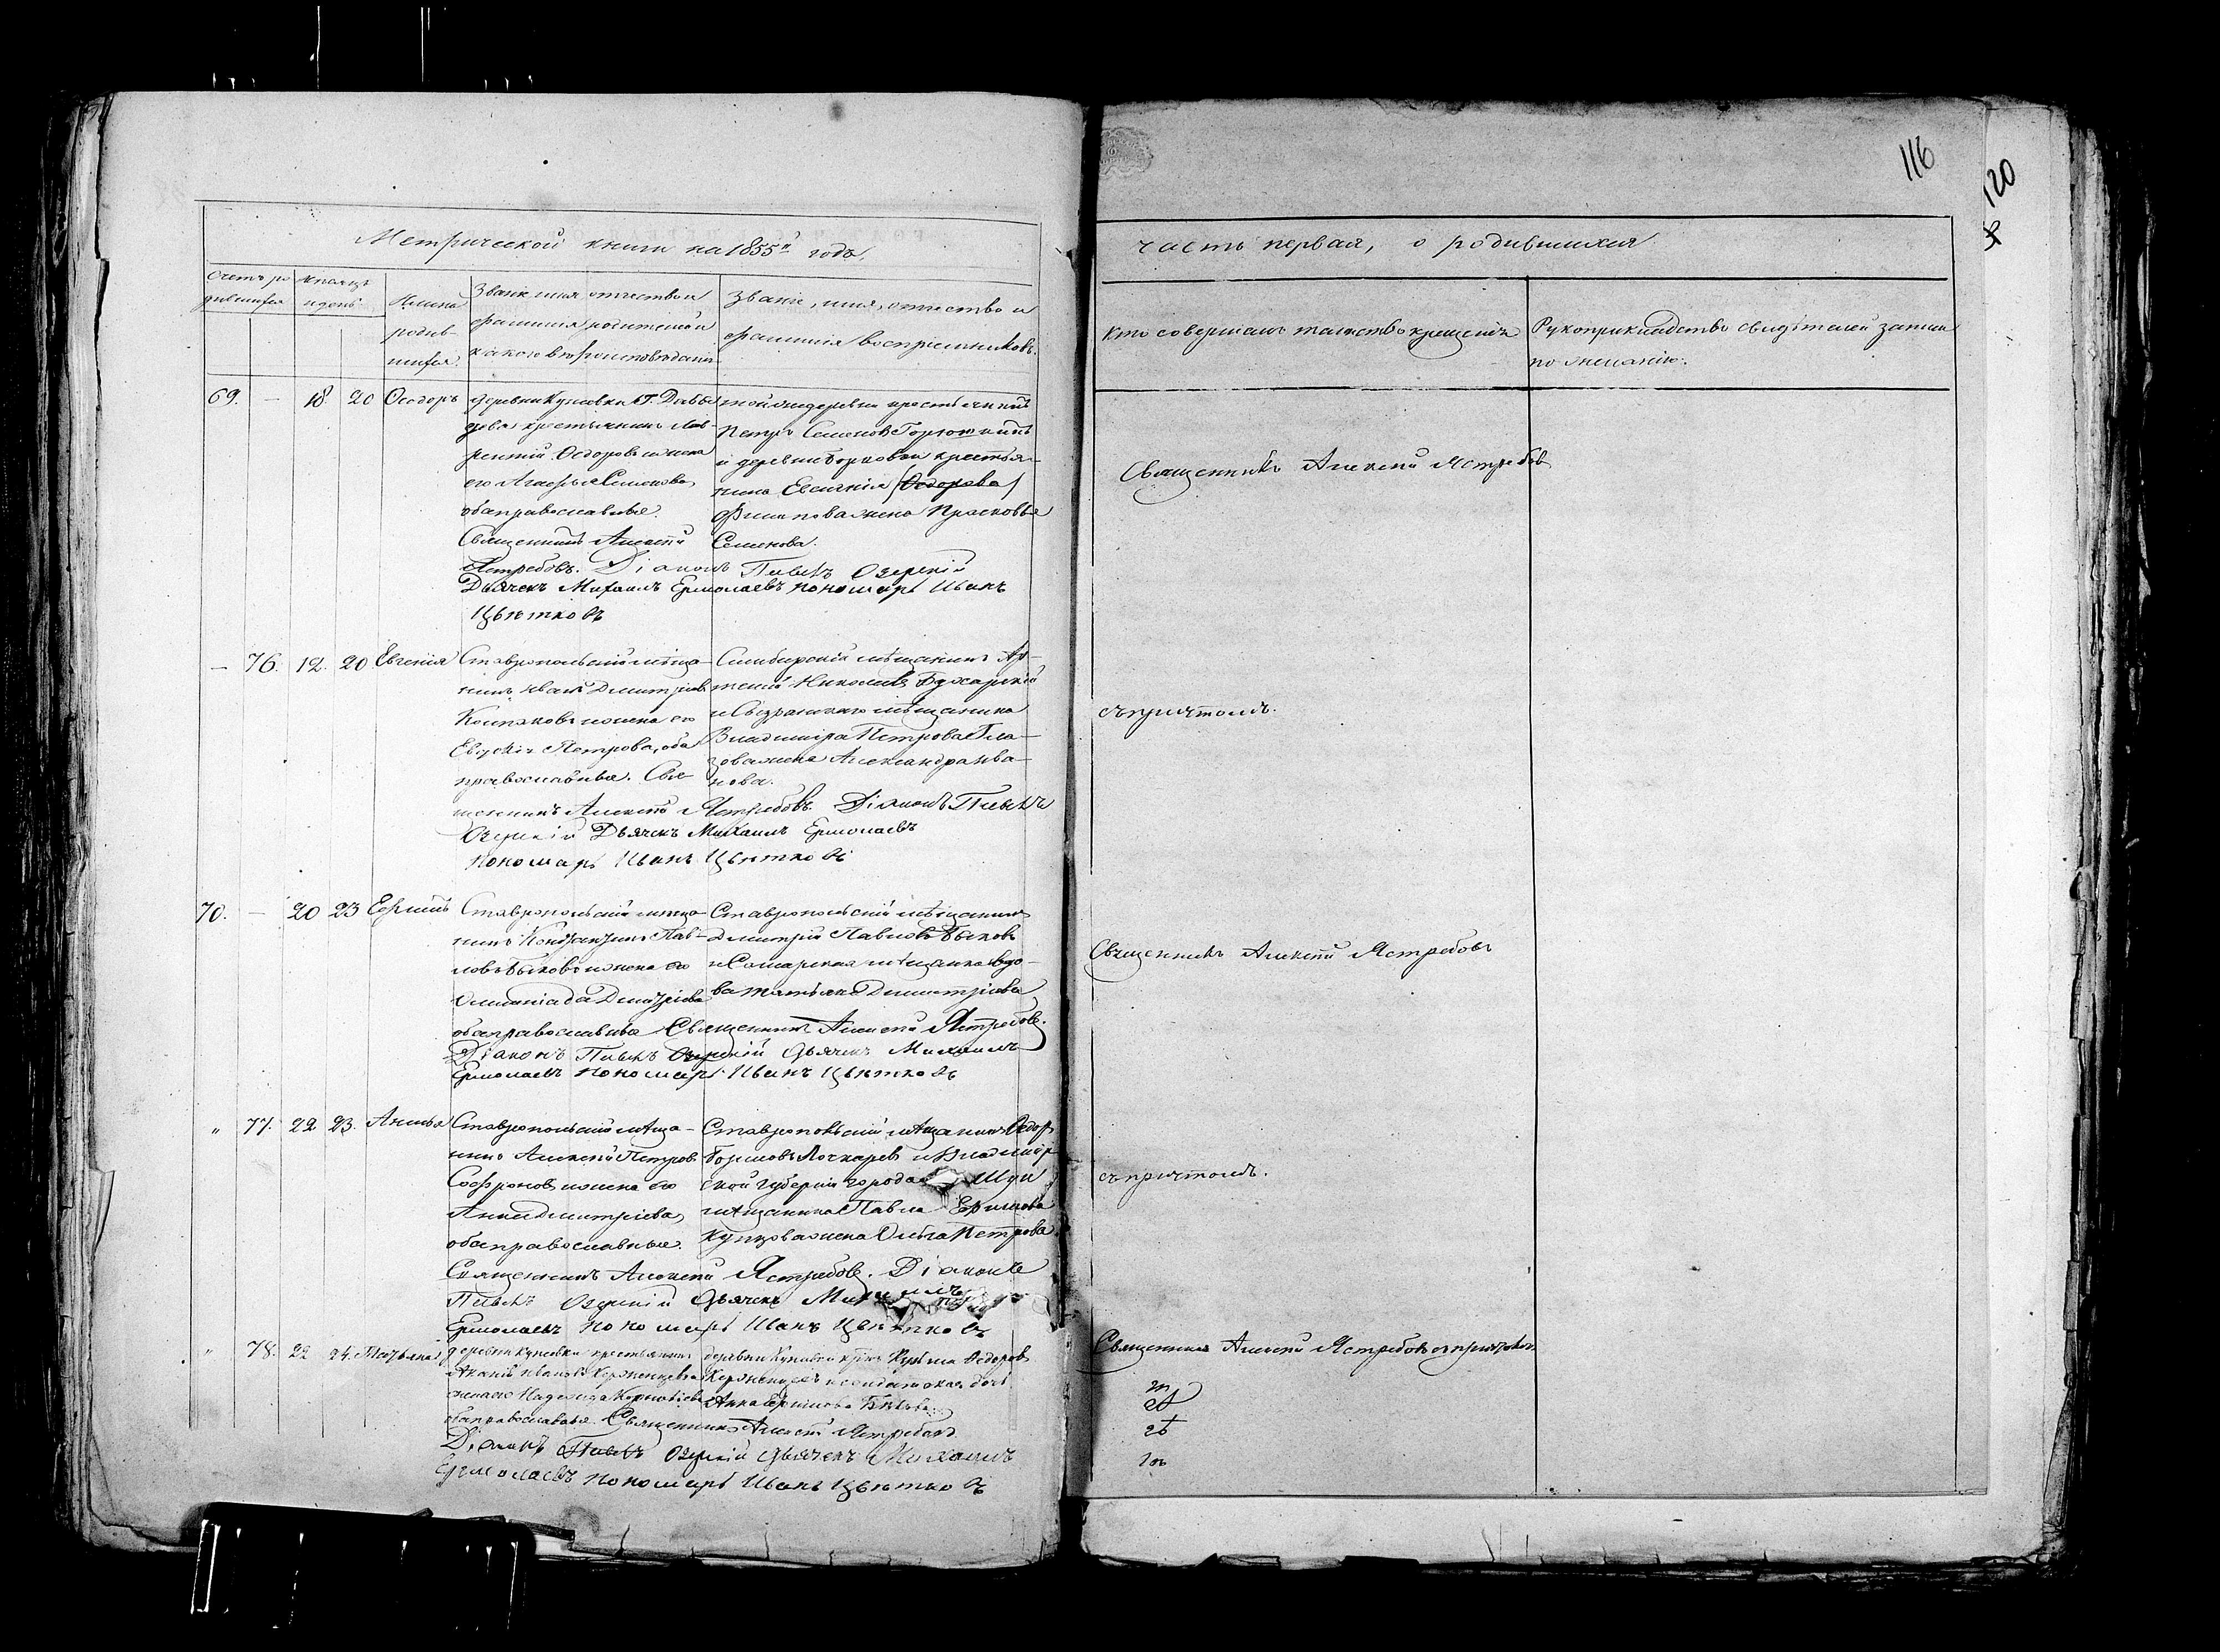 116
120
Метрической книги на 1855й годъ,
часть первая, о родившихся
Счетъ ро
дившихся
Мѣсяцъ
и день
Имена
родив-
шихся.
Званіе имя отчество и
фамилія родителей и
какого вѣроисповѣданія
Званіе, имя, отчество и
фамилія воспріемниковъ.
Кто совершалъ таинство крещенія
Рукоприкладство свидѣтелей записи
по желанію.
69. — 18. 20 Ѳеодоръ
деревни Кунеевки Г.
крестьянинъ Лав-
рентій Ѳедоровъ и жена
его Семенова
оба православные.
Священникъ Алексѣй
Ястребовъ. Діаконъ Павелъ Озерскій
Дьячекъ Михаилъ Ермолаевъ пономарь Иванъ
Цвѣтковъ
той же деревни крестьянинъ
Петръ Семеновъ
и деревни крестья-
нина Евсигнія /Ѳедорова/
Филипова жена Прасковья
Семенова.
Священникъ Алексѣй Ястребовъ
— 76. 12. 20 Евгенія
Ставропольскій мѣща-
нинъ Иванъ Дмитріевъ
и жена его
Петрова, оба
православные. Свя-
щенникъ Алексѣй Ястребовъ. Діаконъ Павелъ
Озерскій Дьячекъ Михаилъ Ермолаевъ
пономарь Иванъ Цвѣтковъ
Симбирскій мѣщанинъ Ар-
темій Николаевъ Бухарскій
и Сызранскаго мѣщанина
Владиміра Петрова Гла-
зова жена Александра Ива-
нова.
съ причтомъ.
70. — 20 23 Ефимъ
Ставропольскій мѣща-
нинъ Константинъ Пав-
ловъ Быковъ и жена его
Олимпіада Дмитріева
оба православные Священникъ Алексѣй Ястребовъ.
Діаконъ Павелъ Озерскій Дьячекъ Михаилъ
Ермолаевъ пономарь Иванъ Цвѣтковъ
Ставропольскій мѣщанинъ
Дмитрій Павловъ Быковъ
и Самарская мѣщанка вдо-
ва Татьяна Димитріева
Священникъ Алексѣй Ястребовъ
„ 77. 22 23.
Ставропольскій мѣща-
нинъ Алексѣй Петровъ
Софроновъ и жена его
Анна Дмитріева
оба православные.
Священникъ Алексѣй Ястребовъ. Діаконъ
Павелъ Озерскій Дьячекъ Михаилъ
Ермолаевъ пономарь Иванъ Цвѣтковъ
Ставропольскій мѣщанинъ Ѳедоръ
Лочкаревъ и Владимір-
ской губерніи города Шуи
мѣщанина Павла Ефимова
Купцова жена Ольга Петрова.
съ причтомъ.
„ 78. 22 24. Татьяна
деревни Кунеевки крестьянинъ
Ивановъ и
жена его Надежда
оба православные. Священникъ Алексѣй Ястребовъ
Діаконъ Павелъ Озерскій Дьячекъ Михаилъ
Ермолаевъ пономарь Иванъ Цвѣтковъ
деревни Кунеевки Ѳедоровъ
и солдатская дочь
Анна Ефимова
Священникъ Алексѣй Ястребовъ съ причтомъ.